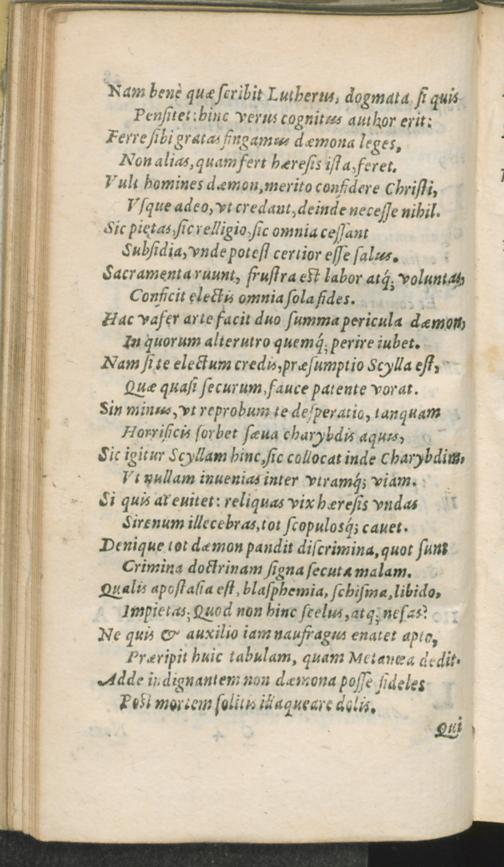 Nam benè quæ scribit Lutherus, dogmata si quis
Pensitet: hinc verus cognitus author erit:
Ferre sibi gratas fingamus dæmona leges,
Non alias, quam fert hæresis ista, feret.
Vult homines dæmon, merito confidere Christi,
Vsque adeo, vt credant, deinde necesse nihil.
Sic pietas, sic relligio, sic omnia cessant
Subsidia, vnde potest certior esse salus.
Sacramenta ruunt, frustra est labor atq; voluntas,
Conficit electis omnia sola fides.
Hac vafer arte facit duo summa pericula dæmon,
In quorum alterutro quemq; perire iubet.
Nam si te electum credis, præsumptio Scylla est,
Quæ quasi securum, fauce patente vorat.
Sin minus, vt reprobum te desperatio, tanquam
Horrificis sorbet sæua charybdis aquis,
Sic igitur Scyllam hinc, sic collocat inde Charybdim,
Vt nullam inuenias inter vtramq; viam.
Si quis at euitet: reliquas vix hæresis vndas
Sirenum illecebras, tot scopulosq; cauet.
Denique tot dæmon pandit discrimina, quot sunt
Crimina doctrinam signa secuta malam.
Qualis apostasia est, blasphemia, schisma, libido,
Impietas; Quod non hinc scelus, atq; nefas?
Ne quis & auxilio iam naufragus enatet apto,
Præripit huic tabulam, quam Metanœa dedit.
Adde indignantem non dæmona posse fideles
Post mortem solitis illaqueare dolis.
Qui